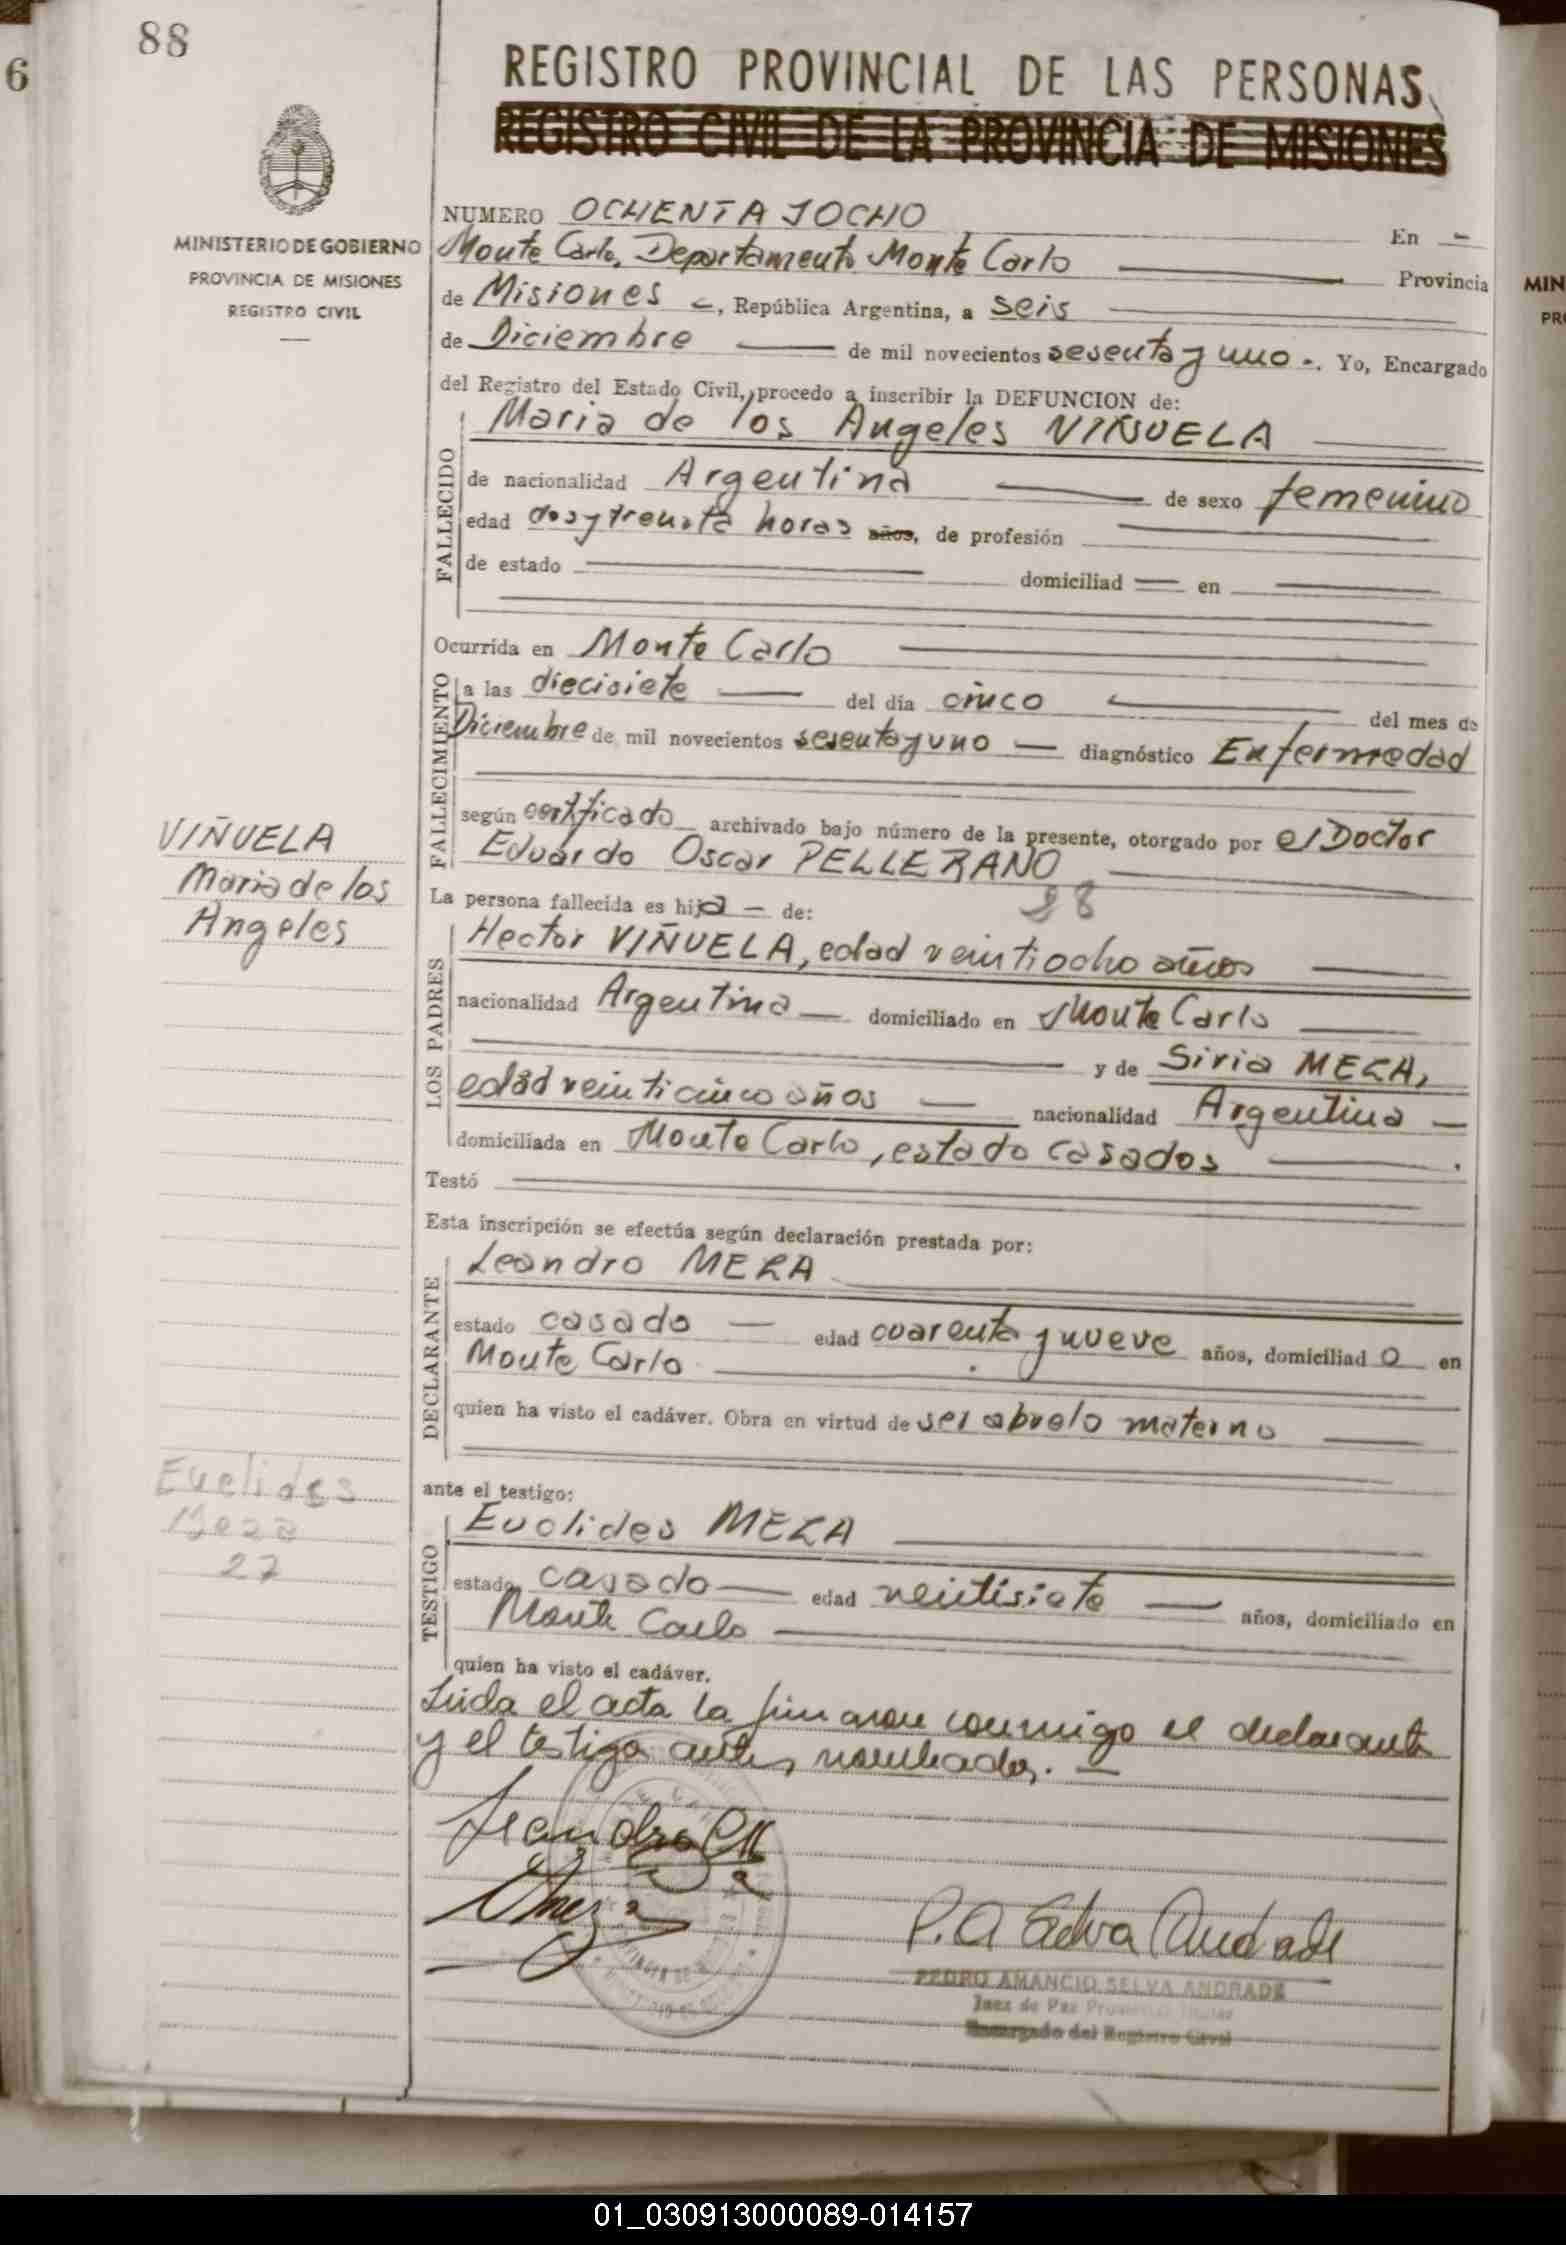 88
6
REGISTRO PROVINCIAL DE LAS PERSONAS
REGISTRO CIVIL DE LA PROVINCIA DE MISIONES
MINISTERIO DE GOBIERNO
PROVINCIA DE MISIONES
REGISTRO CIVIL
NUMERO OCHENTA Y OCHO En
Monte Carlo, Departamento Monte Carlo Provincia
de Misiones, República Argentina, a seis
de Diciembre de mil novecientos sesenta y uno. Yo, Encargado
del Registro del Estado Civil, procedo a inscribir la DEFUNCION de:
FALLECIDO
Maria de los Angeles VIÑUELA
de nacionalidad Argentina de sexo femenino
edad dos y treinta horas años, de profesión
de estado domiciliad en
Ocurrida en Monte Carlo
FALLECIMIENTO
a las diecisiete del día cinco del mes de
Diciembre de mil novecientos sesenta y uno diagnóstico Enfermedad
según certificado archivado bajo número de la presente, otorgado por el Doctor
Eduardo Oscar PELLERANO
88
VIÑUELA
Maria de los
Angeles
La persona fallecida es hija de:
LOS PADRES
Hector VIÑUELA, edad veintiocho años
nacionalidad Argentina domiciliado en Monte Carlo
y de Siria MEZA,
edad veinticinco años nacionalidad Argentina
domiciliada en Monte Carlo, estado casados
Testó
Esta inscripción se efectúa según declaración prestada por:
DECLARANTE
Leandro MEZA
estado casado edad cuarenta y nueve años, domiciliado en
Monte Carlo
quien ha visto el cadáver. Obra en virtud de ser abuelo materno
Euclides
Meza
27
ante el testigo:
TESTIGO
Euclides MEZA
estado casado edad veintisiete años, domiciliado en
Monte Carlo
quien ha visto el cadáver.
Leida el acta la firmaron conmigo el declarante
y el testigo antes nombrados.
Leandro
Meza
P. A Selva Andrade
PEDRO AMANCIO SELVA ANDRADE
Juez de Paz
Encargado del Registro Civil
MIN
PRO
01_030913000089-014157